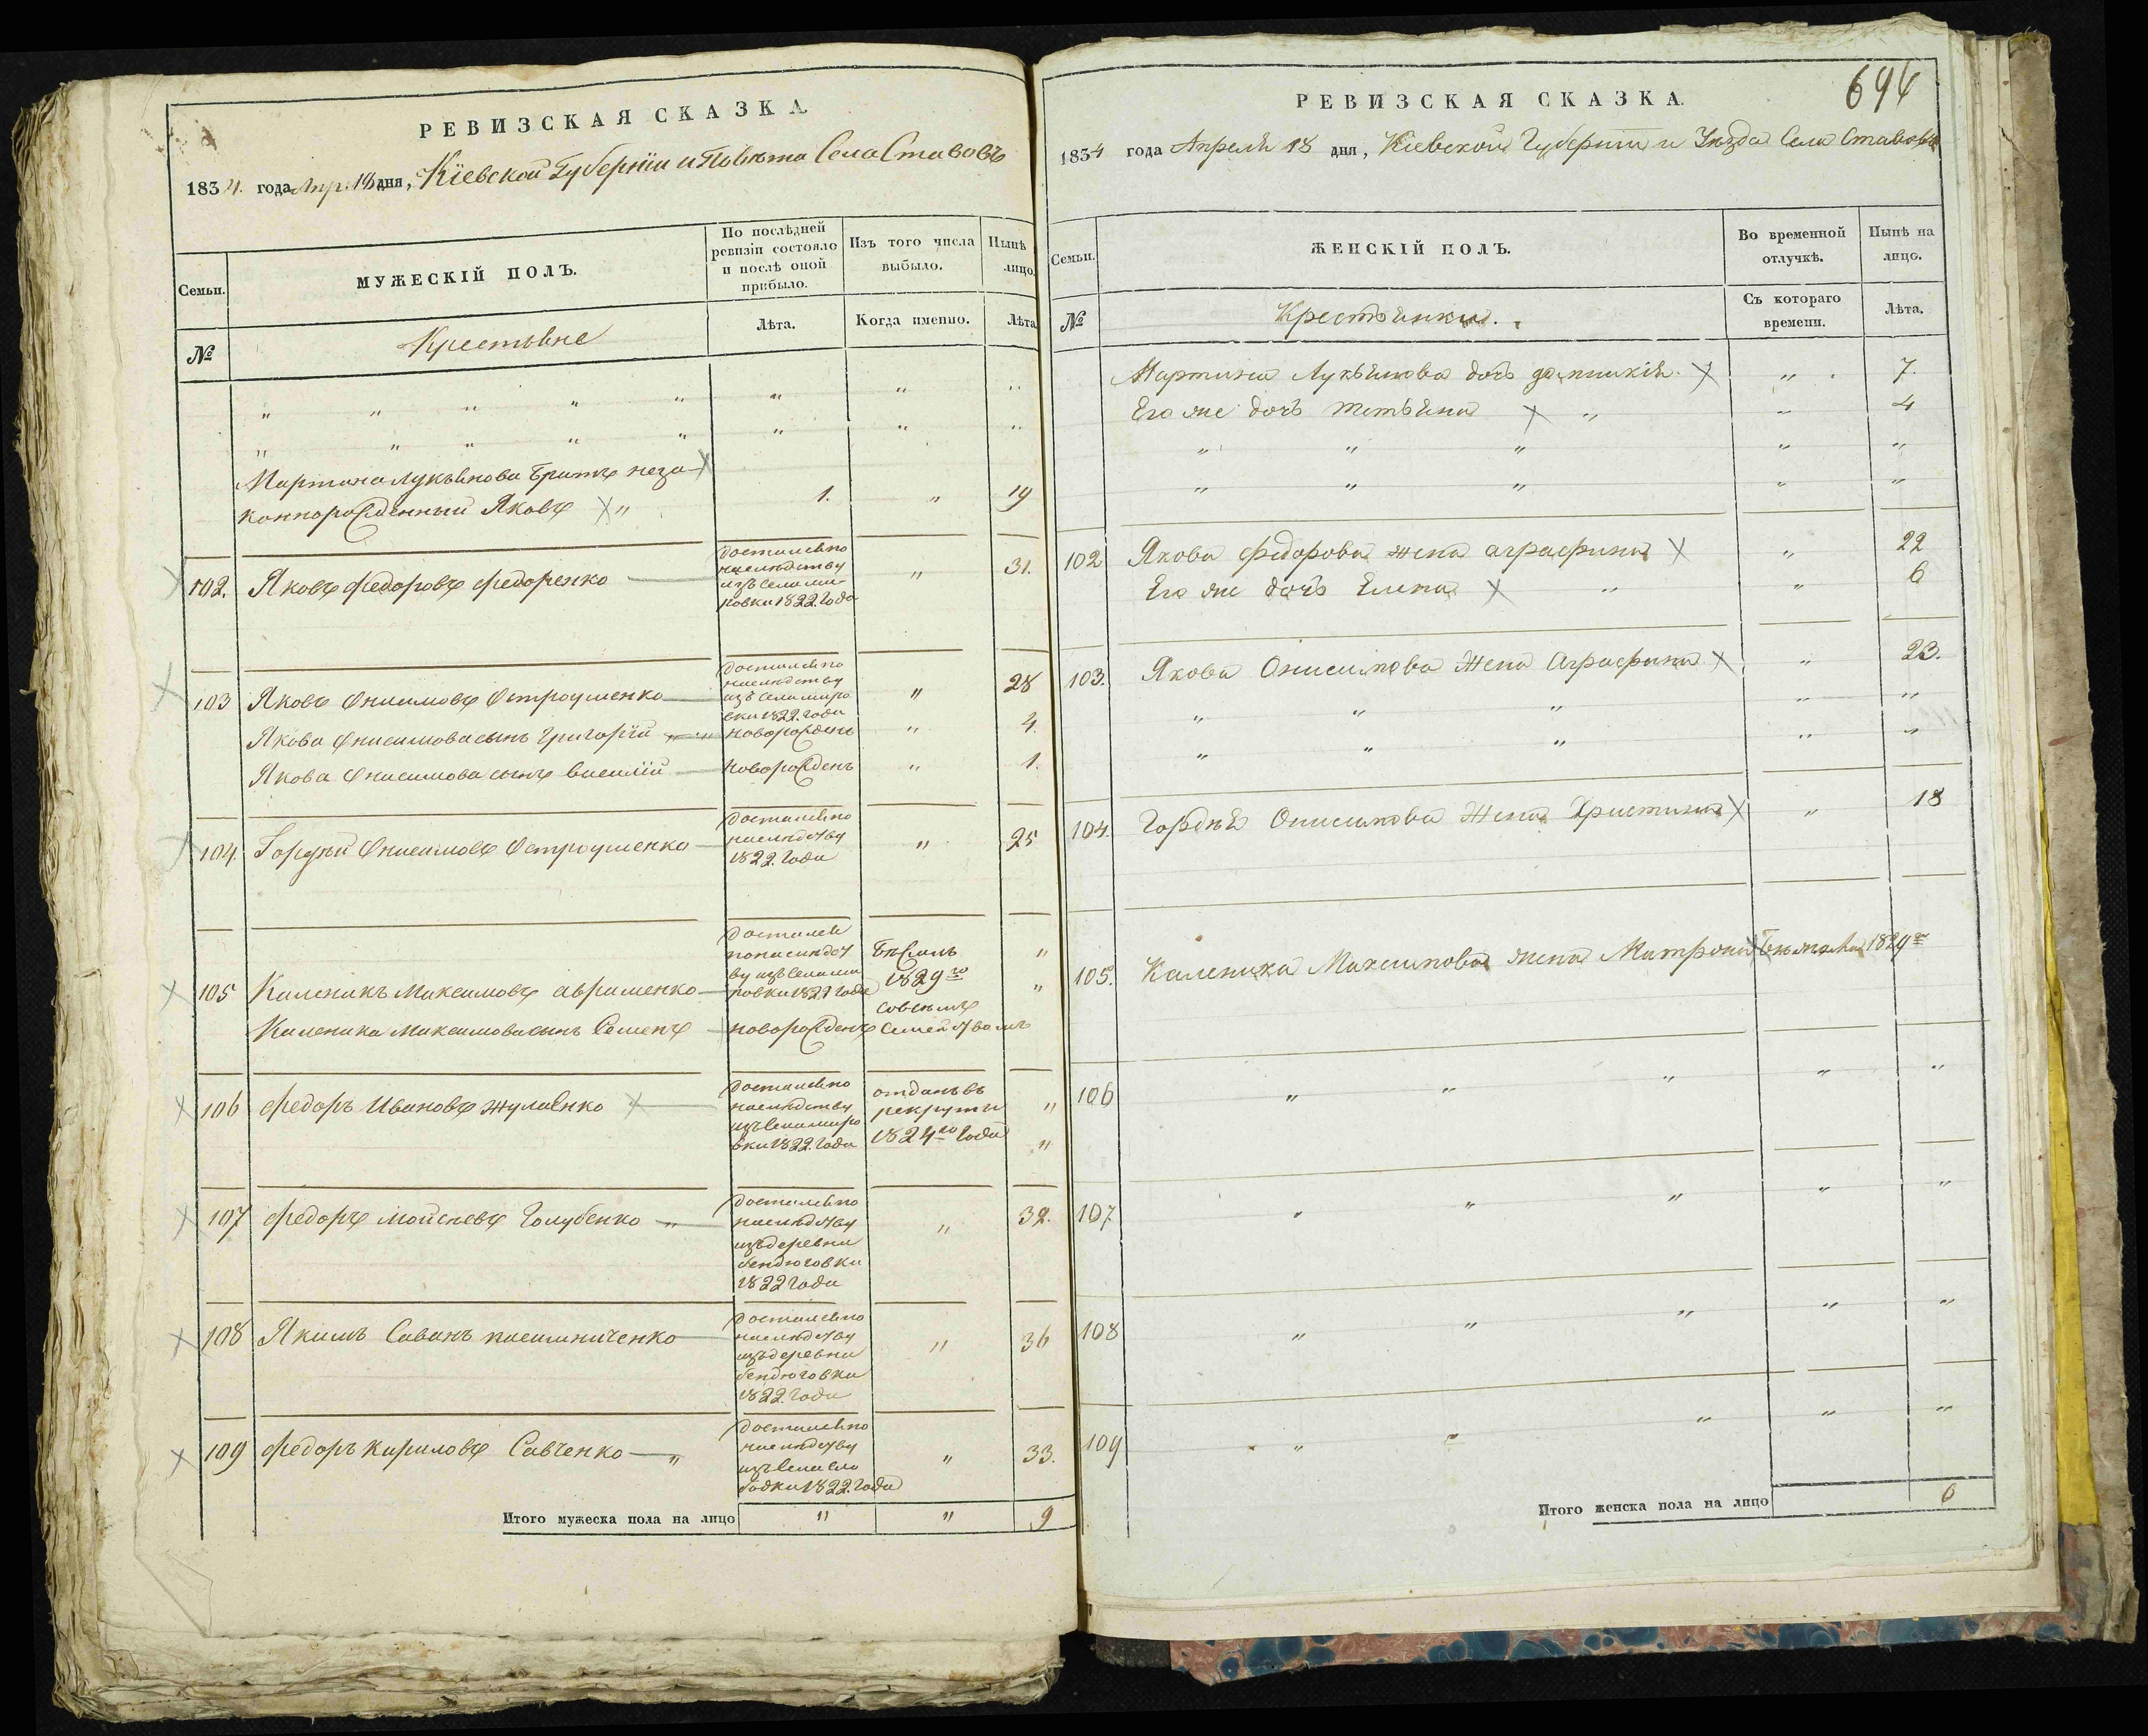 РЕВИЗСКАЯ СКАЗКА
1834. года Апр. 18 дня, Кіевской Губерніи и Повѣта Села Ставовъ
Семьи.
МУЖЕСКІЙ ПОЛЪ.
По послѣдней
ревизіи состояло
и послѣ оной
прибыло.
Изъ того числа
выбыло.
Нынѣ
лицо.
№
Крестьяне
Лѣта.
Когда именно.
Лѣта
" " " " " " " "
" " " " " " " "
Мартина Лукьянова братъ неза-
коннорожденный Яковъ " 1. " 19
102. Яковъ Федоровъ Федоренко
достался по
наслѣдству
изъ села ми-
ровки 1822. года
" 31.
103 Яковъ Онисимовъ Остроушенко
достался по
наслѣдству
изъ села миро
вки 1822. года
" 28
Якова Онисимова сынъ Григорій " " новорожденъ " 4.
Якова Онисимова сынъ василій новорожденъ " 1.
104. Гордѣй Онисимовъ Остроушенко
достался по
наслѣдству
1822. года
" 25
105 Каленикъ Максимовъ авраменко
достался
по наслѣдст
ву изъ села ми
ровки 1822 года
Бѣжалъ
1829го
совсѣмъ
семействомъ
"
"
Каленика Максимова сынъ Семенъ новорожденъ
106 Федоръ Ивановъ жулаенко
достался по
наслѣдству
изъ села миро
вки 1822. года
отданъ въ
рекруты
1824го года
"
"
107 Федоръ мойсеевъ Голубенко "
достался по
наслѣдству
изъ деревни
бендюговки
1822 года
" 32.
108 Якимъ Саванъ пасишниченко
достался по
наслѣдству
изъ деревни
бендюговки
1822. года
" 36
109 Федоръ Кириловъ Савченко "
достался по
наслѣдству
изъ села сло
бодки 1822. года
" 33.
Итого мужеска пола на лицо " " 9
694
РЕВИЗСКАЯ СКАЗКА.
1834 года Апреля 18 дня, Кіевской Губерніи и Уѣзда Села Ставовъ
Семьи.
ЖЕНСКІЙ ПОЛЪ.
Во временной
отлучкѣ.
Нынѣ на
лицо.
№
Крестьянки.
Съ котораго
времени.
Лѣта.
Мартина Лукьянова дочь " 7.
Его же дочь татьяна " " 4
" " " " "
" " " " "
102 Якова Федорова жена аграфина " 22
Его же дочь Елена " " 6
103. Якова Онисимова жена Аграфина " 23.
" " " " "
" " " " "
104. Гордѣя Онисимова жена Христина " 18
105. Каленика Максимова жена Матрона Бѣжала 1829го
106 " " " " "
107 " " " " "
108 " " " " "
109 " " " " "
Итого женска пола на лицо 6